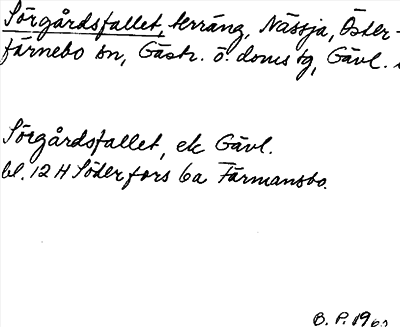 Sörgårdsfallet, terräng, Nässja, Öster-
färnebo sn, Gästr. ö. doms tg, Gävl.
Sörgårdsfallet, ek Gävl.
bl. 12 H Söderfors 6a Färmansbo.
B. P. 19